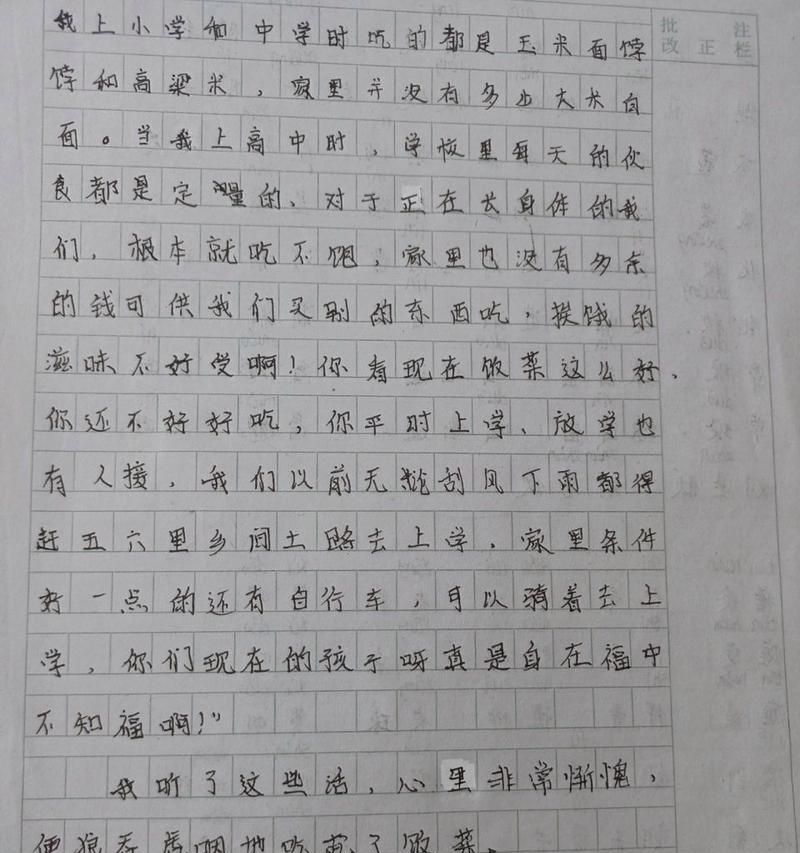 批 注
改 正 栏
我上小学和中学时吃的都是玉米面饽
饽和高梁米，家里并没有多少大米白
面。当我上高中时，学校里每天的伙
食都是定量的、对于正在长身体的我
们，根本就吃不饱，家里也没有多余
的钱可供我们买别的东西吃，挨饿的
滋味不好受啊！你看现在饭菜这么好，
你还不好好吃，你平时上学、放学也
有人接，我们以前无论刮风下雨都得
赶五六里乡间土路去上学，家里条件
好一点的还有自行车，可以骑着去上
学，你们现在的孩子呀真是自在福中
不知福啊！”
我听了这些话，心里非常惭愧，
便狼吞虎咽地吃完了饭菜。